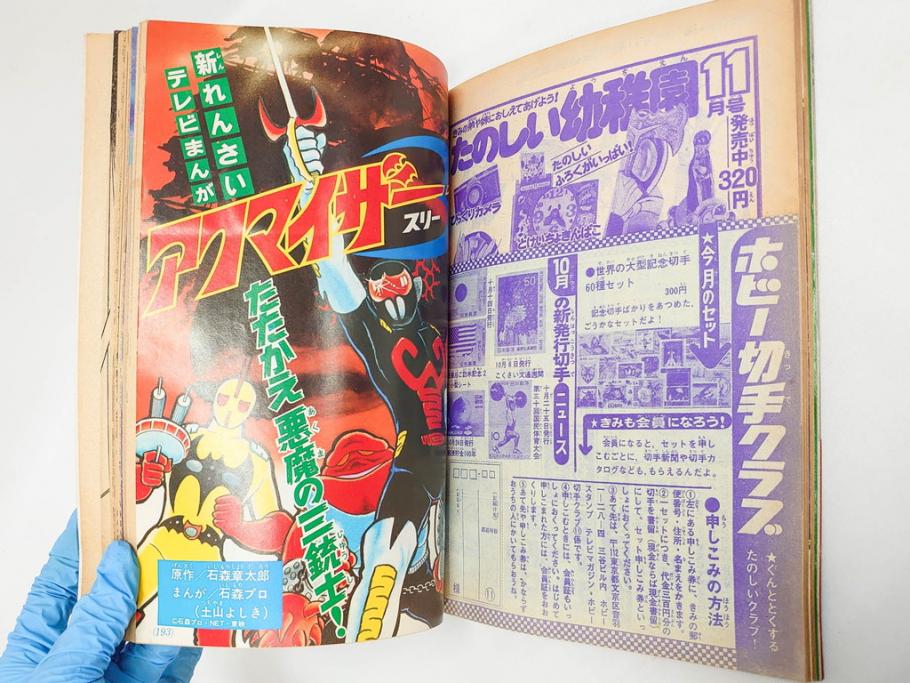 新れんさい
テレビまんが
アクマイザー
スリー
たたかえ悪魔の三銃士!
原作/石森章太郎
まんが/石森プロ
(土山よしき)
©石森プロ・NET・東映
(193)
たのしい幼稚園
11
月号
発売中
320
円
たのしい
ふろくがいっぱい!
ホビー切手クラブ
★ぐんととくする
たのしいクラブ!
★今月のセット
●世界の大型記念切手
60種セット
300円
記念切手ばかりをあつめた、
ごうかなセットだよ!
★きみも会員になろう!
会員になると、セットを申し
こむごとに、切手新聞や切手カ
タログなども、もらえるんだよ。
10月の新発行切手・ニュース
十月十四日発行
10月6日発行
こくさい文通週間
十月二十五日発行
第三十回国民体育大会
●申しこみの方法
①左にある申しこみ券に、きみの郵
便番号、住所、名まえをかきます。
②一セットにつき、代金三百円分の
切手を書留(現金ならば現金書留)
にして、セット申しこみ券といっ
しょにおくってください。
切手クラブ⑪係です。
④申しこむときには、会員証もいっ
しょにおくってください。はじめて
申しこまれた方には、会員証をおお
くりします。
様
⑪